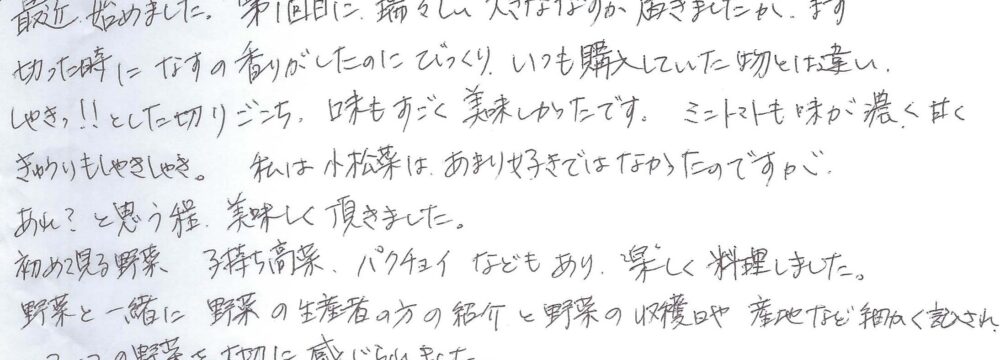 最近 始めました。第1回目に、瑞々しい 大きななすが 届きましたが、まず
切った時に なすの香りがしたのに びっくり、いつも購入していた物とは違い、
しゃきっ!!とした切りごこち、味もすごく美味しかったです。 ミニトマトも味が濃く甘く
きゅうりもしゃきしゃき。 私は小松菜は、あまり好きではなかったのですが、
あれ?と思う程、美味しく頂きました。
初めて見る野菜 子持ち高菜、パクチョイ などもあり、楽しく料理しました。
野菜と一緒に 野菜の生産者の方の紹介と野菜の収穫日や 産地など細かく記され、
の野菜を大切に感じられました